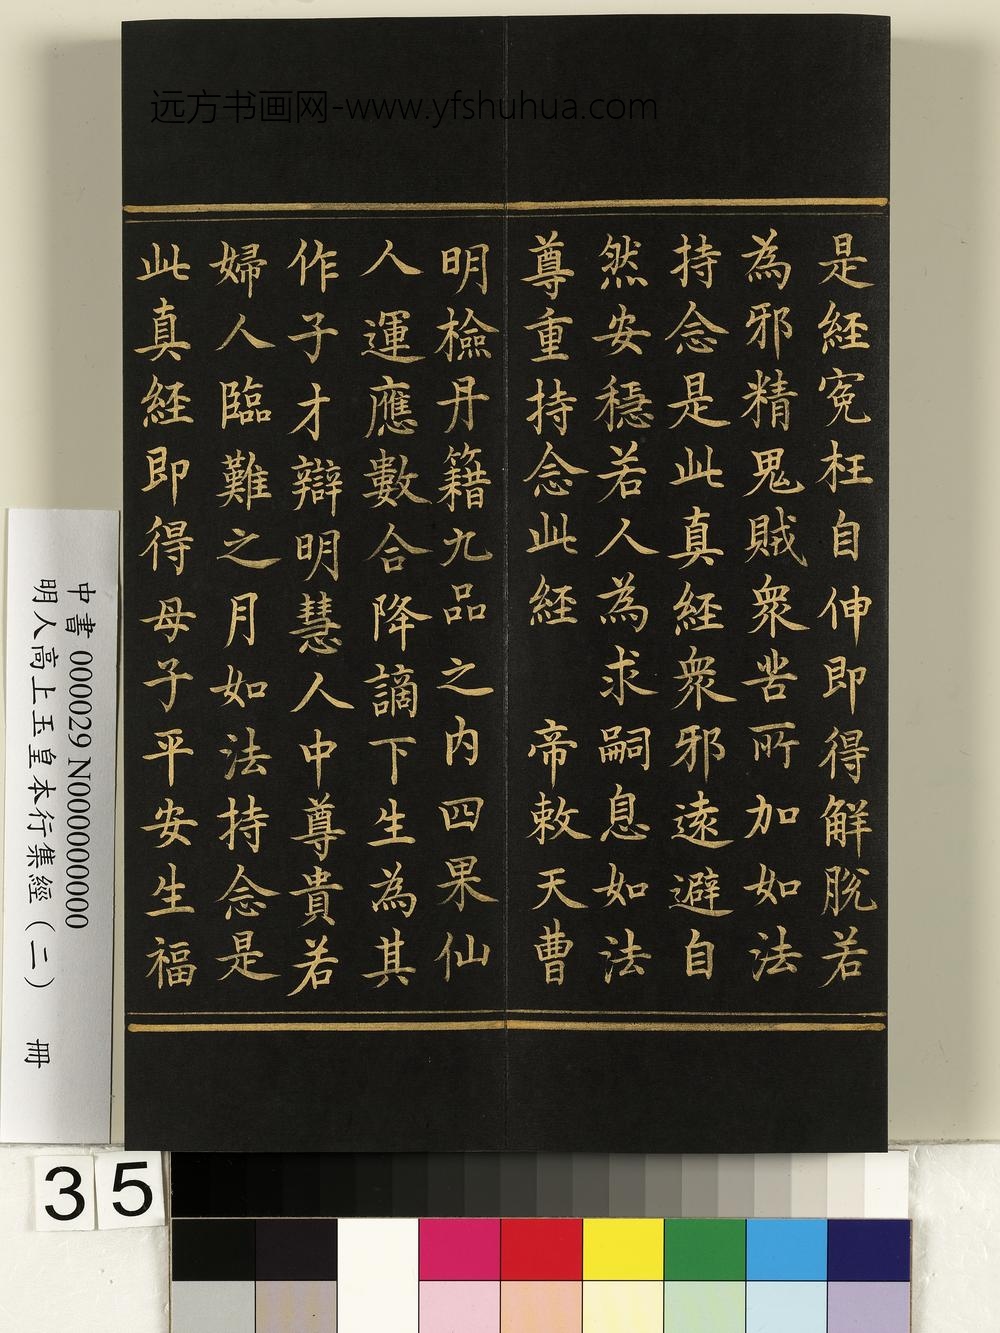 远方书画网-www.yfshuhua.com
是經寃枉自伸即得解脫若
為邪精鬼賊衆苦所加如法
持念是此真經衆邪遠避自
然安穩若人為求嗣息如法
尊重持念此經　帝敕天曹
明檢丹籍九品之内四果仙
人運應數合降謫下生為其
作子才辯明慧人中尊貴若
婦人臨難之月如法持念是
此真經即得母子平安生福
中書 000029 N000000000
明人高上玉皇本行集經（二）　冊
35